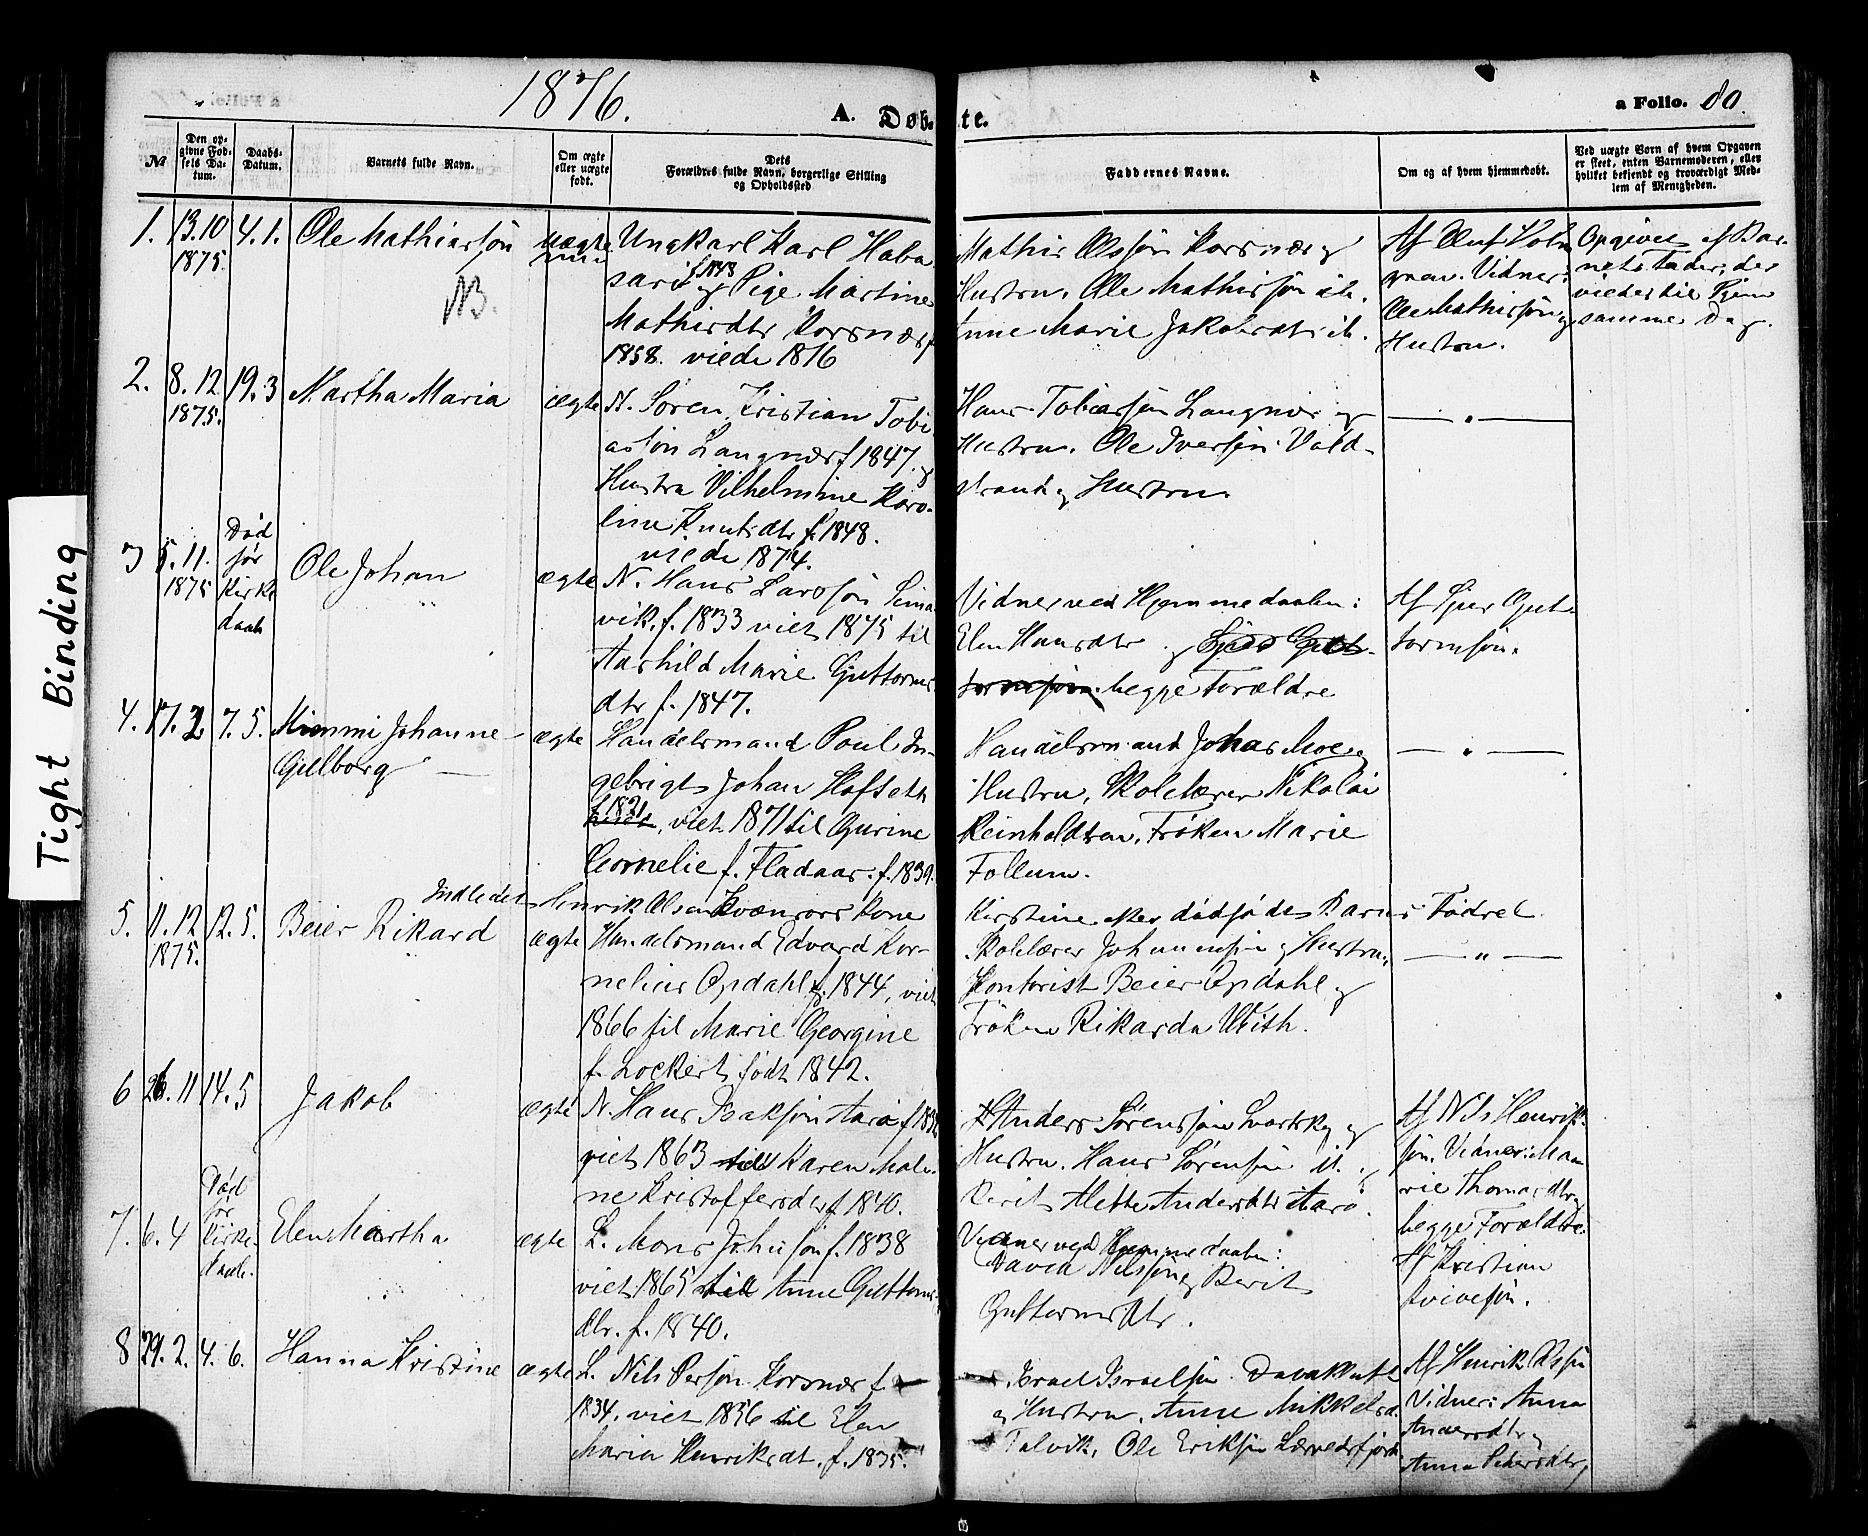 1876.
A. Døb-
te.
a Folio. 80.
№
Den op-
givne Fød-
sels Da-
tum.
Daabs-
Datum.
Barnets fulde Navn.
Om ægte
eller uægte
født.
Dets
Forældres fulde Navn, borgerlige Stilling
og Opholdssted
Faddernes Navne.
Om og af hvem hjemmedøbt.
Ved uægte Born af hvem Opgaven
er skeet, enten Barnemoderen, eller
hvilket bekjendt og troværdigt Med-
lem af Menigheden.
1.
13.10
1875.
4.1.
Ole Mathiassøn
NB.
uægte
Ungkarl Karl Haba
sari f. 1843
og Pige Martine
Mathisdtr Korsnæs f
1858. viede 1876
Mathis Olssøn Korsnæs og
Hustru. Ole Mathissøn ib.
Anne Marie Jakobsdtr ib.
Af Oluf
Vidner:
Ole Mathissøn og
Hustru.
Opgivet af Bar-
nets Fader, der
viedes til Pigen
samme Dag.
2.
8.12
1875.
19.3
Martha Maria
ægte
N. Søren Kristian Tobi
assøn Langnæs f 1847. og
Hustru Vilhelmine Karo-
line Knutsdtr f. 1848.
viede 1874.
Hans Tobiassøn Langnæs og
Hustru. Ole Iversøn Vold-
strand og Hustru.
— " —
3
5.11.
1875
Død
før
Kirke
daab
Ole Johan
ægte
N. Hans Larssøn Sima
vik. f. 1833 viet 1875 til
Aashild Marie Guttorms
dtr f. 1847.
Vidner ved Hjemmedaaben:
Elen Hansdtr og Sjur Gut-
tormsøn. begge Forældre
Af Sjur Gut-
tormsøn.
4.
17.2
7.5.
Mimmi Johanne
Gulborg —
ægte
Handelsmand Poul In-
gebrigt Johan Hofseth
f. 1821
viet 1871 til Gurine
Cornelie f. Fladaas. f. 1839.
Handelsmand Johas Moe og
Hustru, Skolelærer Nikolai
Reinholdtsen, Frøken Marie
Follum.
— " —
Indledet Henrik Olsen Kvænvors Kone
Kirstine efter dødfødt Barns Fødsel.
5.
11.12
1875.
12.5.
Beier Rikard
ægte
Handelsmand Edvard Kor-
nelius Opdahl f. 1844, viet
1866 til Marie Georgine
f. Lockert, født 1842.
Skolelærer Johannesøn og Hustru,
Kontorist Beier Opdahl og
Frøken Rikarda With.
— " —
6
26.11
14.5
Jakob
ægte
N. Hans Isaksøn Aarø f 1838
viet 1863 till Karen Male-
ne Kristoffersdtr f. 1840.
Anders Sørensøn Svartsky og
Hustru. Hans Sørensøn ib. og
Berit Alette Andersdtr Aarø.
Af Nils Henrik-
søn. Vidner: Ma
rie Thomasdtr,
begge Forældre.
7.
6.4
Død
før
Kirke-
daab.
Elen Martha
ægte
L. Mons Johnsøn f. 1838
viet 1865 till Anne Guttorms
dtr. f. 1840.
Vidner ved Hjemmedaaben:
David Nilssøn og Berit
Guttormsdtr.
Af Kristian
Aviosøn.
8
29.2.
4. 6.
Hanna Kristine
ægte
L. Nils Persøn Korsnæs f.
1834, viet 1856 til Elen
Maria Henriksdt. f. 1835.
Israel Israelsøn
og Hustru. Anne Mikkelsd.
Talvik, Ole Eriksøn Lærredsfjord
Af Henrik Olssøn
Vidner: Anna
Andersdtr og
Anna Pedersdtr,
Tight Binding